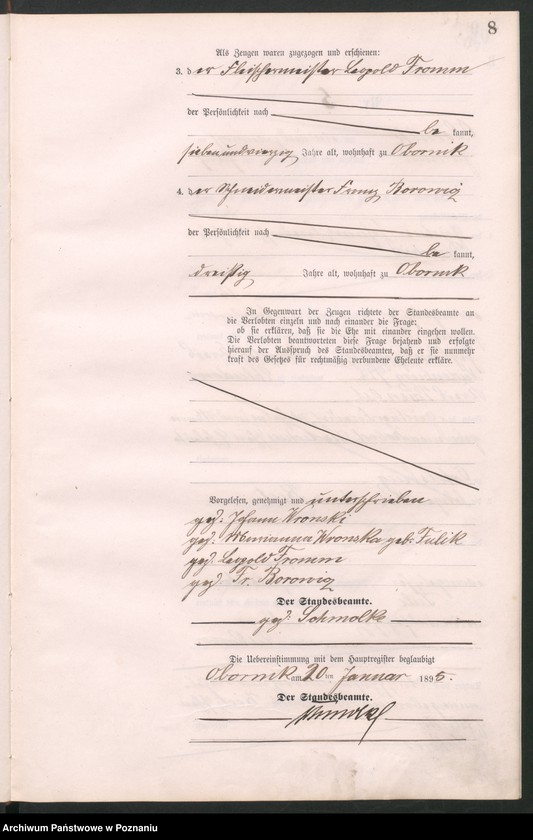 8
Als Zeugen waren zugezogen und erschienen:
3. der Fleischermeister Leopold Fromm
der Persönlichkeit nach
be kannt,
siebenundvierzig Jahre alt, wohnhaft zu Obornik
4. der Schneidermeister Franz Borowicz
der Persönlichkeit nach
be kannt,
dreißig Jahre alt, wohnhaft zu Obornik
In Gegenwart der Zeugen richtete der Standesbeamte an
die Verlobten einzeln und nach einander die Frage:
ob sie erklären, daß sie die Ehe mit einander eingehen wollen.
Die Verlobten beantworteten diese Frage bejahend und erfolgte
hierauf der Ausspruch des Standesbeamten, daß er sie nunmehr
kraft des Gesetzes für rechtmäßig verbundene Eheleute erkläre.
Vorgelesen, genehmigt und unterschrieben
gez. Johann Wronski
gez. Marianna Wronska geb. Fulik
gez. Leopold Fromm
gez. Fr. Borowicz
Der Standesbeamte.
gez. Schmolke
Die Uebereinstimmung mit dem Hauptregister beglaubigt
Obornik am 20 ten Januar 1895.
Der Standesbeamte.
Schmolke
Archiwum Państwowe w Poznaniu